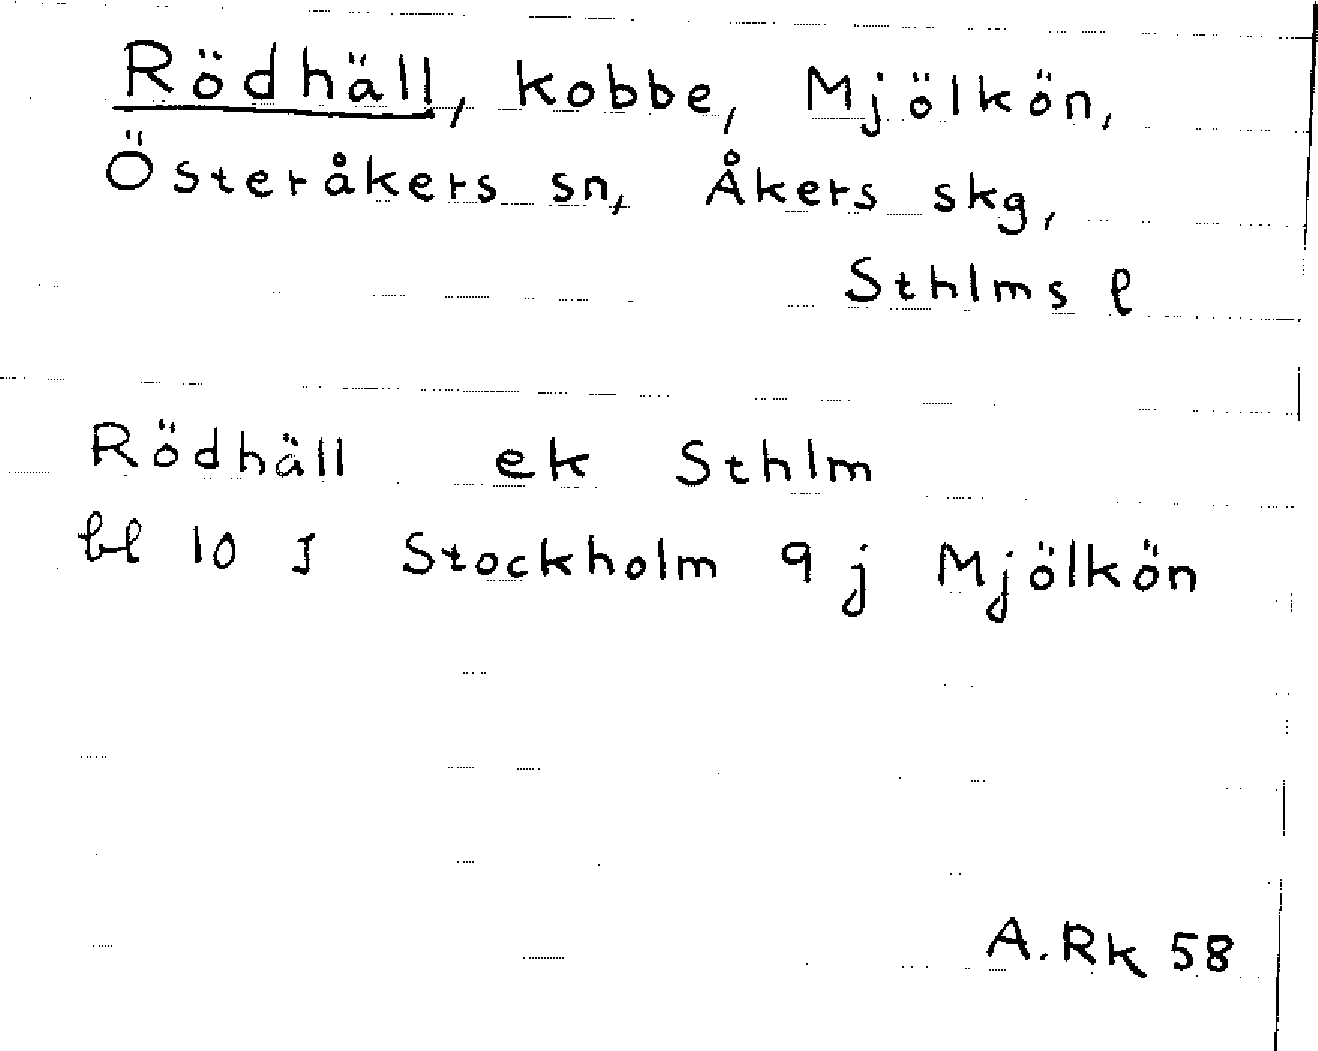 Rödhäll, kobbe, Mjölkön,
Österåkers sn, Åkers skg,
Sthlms l
Rödhäll ek Sthlm
bl 10 I Stockholm 9 j Mjölkön
A. Rk 58